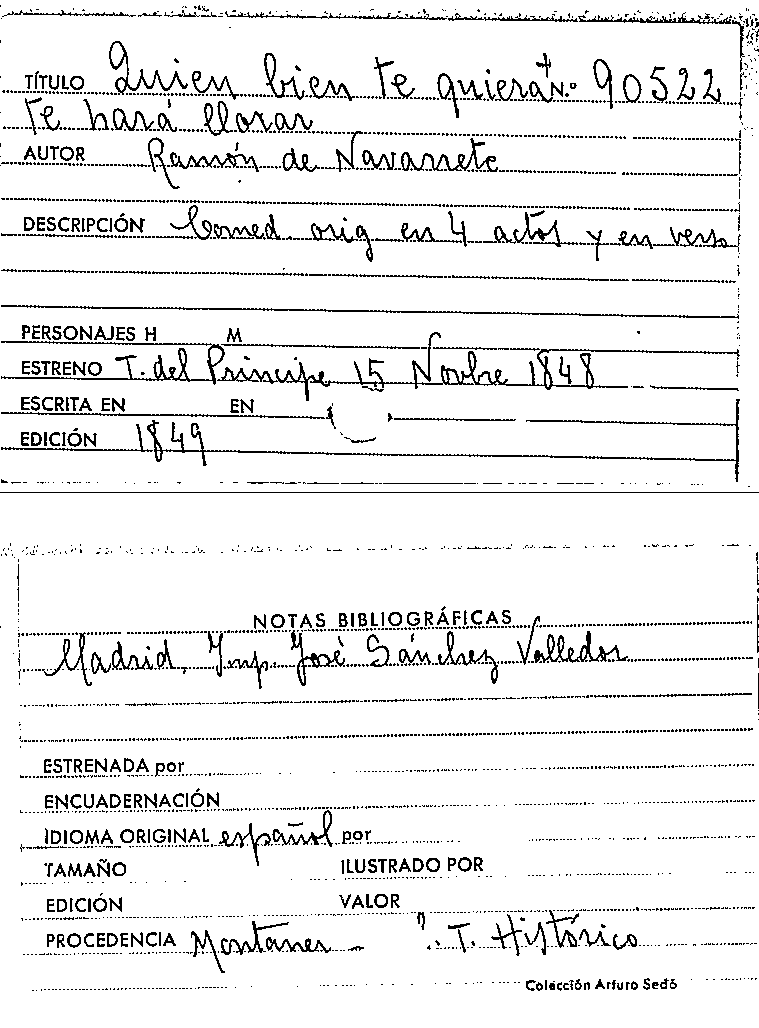 TÍTULO Quien bien te quiera N.º 90522
te hará llorar
AUTOR Ramón de Navarrete
DESCRIPCIÓN Comed. orig en 4 actos y en verso
PERSONAJES H M
ESTRENO T. del Principe 15 Novbre 1848
ESCRITA EN EN
EDICIÓN 1849
NOTAS BIBLIOGRÁFICAS
Madrid, Imp. José Sánchez Valledor
ESTRENADA por
ENCUADERNACIÓN
IDIOMA ORIGINAL español por
TAMAÑO ILUSTRADO POR
EDICIÓN VALOR
PROCEDENCIA Montaner - T. Histórico
Colección Arturo Sedó